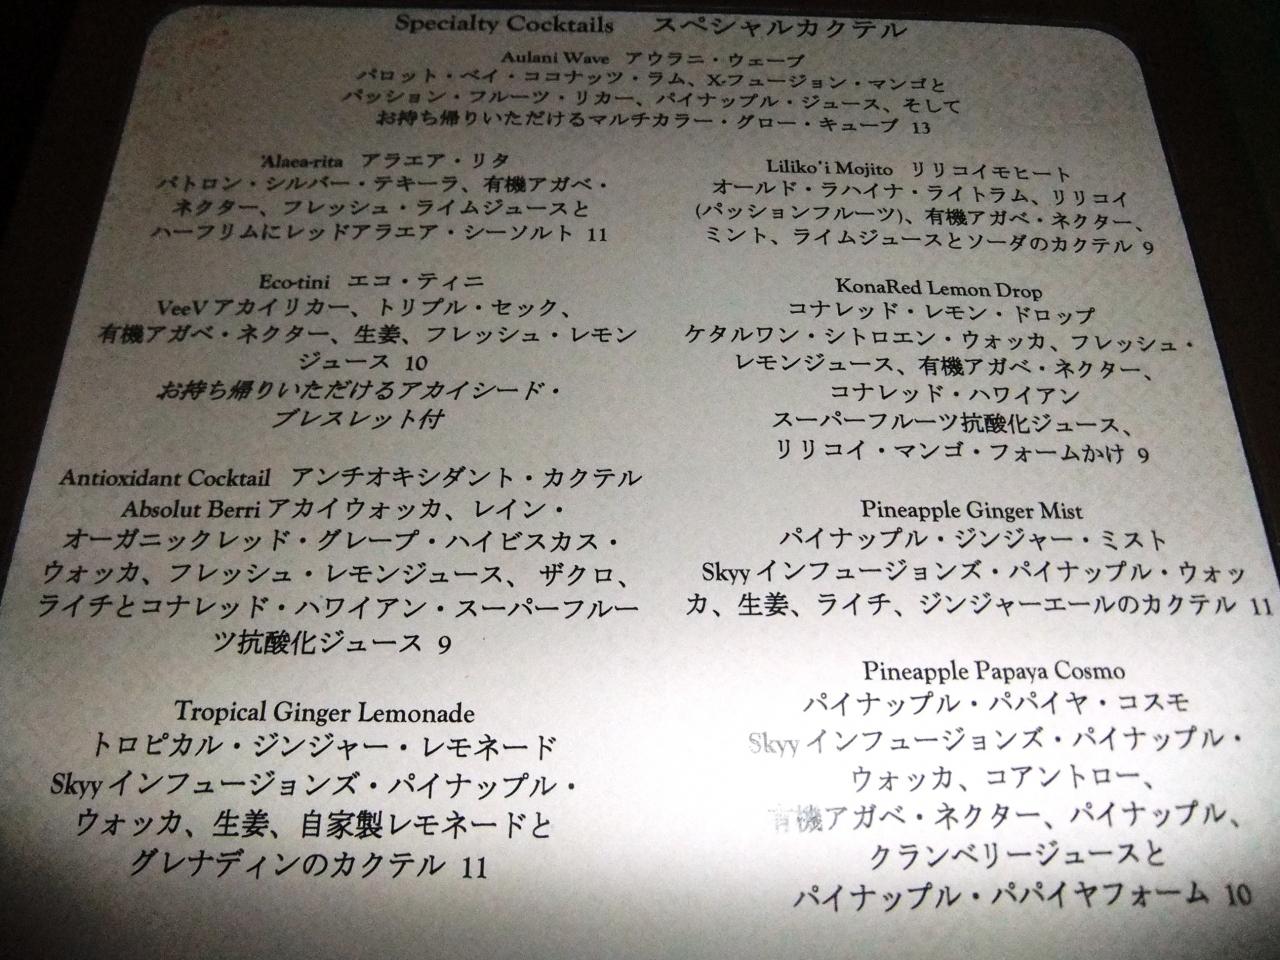 Specialty Cocktails スペシャルカクテル
Aulani Wave アウラニ・ウェーブ
パロット・ベイ・ココナッツ・ラム、X-フュージョン・マンゴと
パッション・フルーツ・リカー、パイナップル・ジュース、そして
お持ち帰りいただけるマルチカラー・グロー・キューブ 13
'Alaea-rita アラエア・リタ
パトロン・シルバー・テキーラ、有機アガベ・
ネクター、フレッシュ・ライムジュースと
ハーフリムにレッドアラエア・シーソルト 11
Eco-tini エコ・ティニ
VeeVアカイリカー、トリプル・セック、
有機アガベ・ネクター、生姜、フレッシュ・レモン
ジュース 10
お持ち帰りいただけるアカイシード・
ブレスレット付
Antioxidant Cocktail アンチオキシダント・カクテル
Absolut Berri アカイウォッカ、レイン・
オーガニックレッド・グレープ・ハイビスカス・
ウォッカ、フレッシュ・レモンジュース、 ザクロ、
ライチとコナレッド・ハワイアン・スーパーフルー
ツ抗酸化ジュース 9
Tropical Ginger Lemonade
トロピカル・ジンジャー・レモネード
Skyyインフュージョンズ・パイナップル・
ウォッカ、生姜、自家製レモネードと
グレナディンのカクテル 11
Liliko'i Mojito リリコイモヒート
オールド・ラハイナ・ライトラム、リリコイ
(パッションフルーツ)、有機アガベ・ネクター、
ミント、ライムジュースとソーダのカクテル 9
KonaRed Lemon Drop
コナレッド・レモン・ドロップ
ケタルワン・シトロエン・ウォッカ、フレッシュ・
レモンジュース、有機アガベ・ネクター、
コナレッド・ハワイアン
スーパーフルーツ抗酸化ジュース、
リリコイ・マンゴ・フォームかけ 9
Pineapple Ginger Mist
パイナップル・ジンジャー・ミスト
Skyyインフュージョンズ・パイナップル・ウォッ
カ、生姜、ライチ、ジンジャーエールのカクテル 11
Pineapple Papaya Cosmo
パイナップル・パパイヤ・コスモ
Skyyインフュージョンズ・パイナップル・
ウォッカ、コアントロー、
有機アガベ・ネクター、パイナップル、
クランベリージュースと
パイナップル・パパイヤフォーム 10